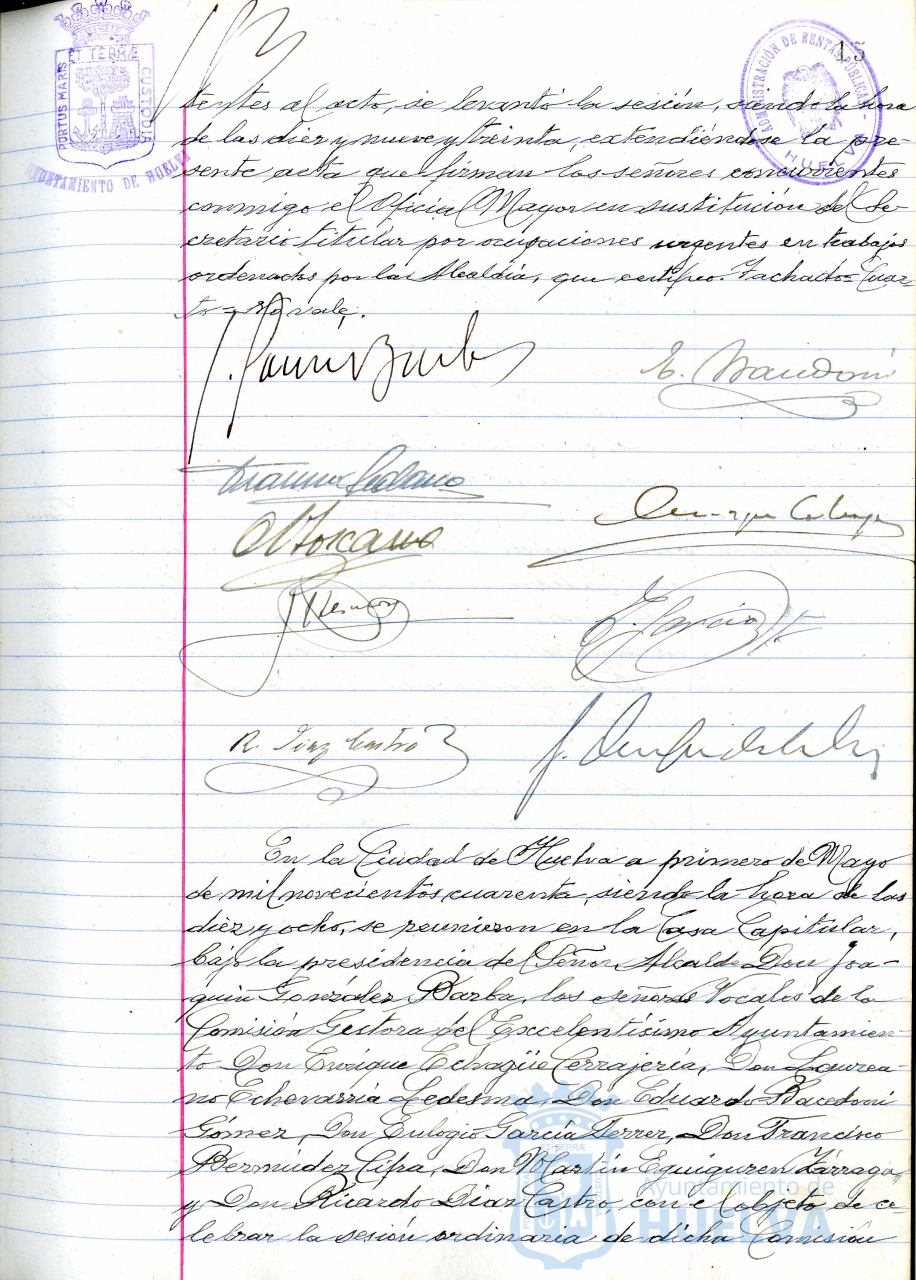 15
PORTUS MARIS ET TERRÆ CUSTODIA
AYUNTAMIENTO DE HUELVA
ADMINISTRACIÓN DE RENTAS PÚBLICAS - HUELVA
tentes al acto, se levantó la sesión, siendo la hora
de las diez y nueve y treinta, extendiéndose la pre-
sente acta que firman los señores concurrentes
conmigo el Oficial Mayor en sustitución del Se-
cretario titular por ocupaciones urgentes en trabajos
ordenados por la Alcaldía, que certifico. Tachado=Cuar-
to=No vale.
R. Diaz Castro
En la Ciudad de Huelva a primero de Mayo
de mil novecientos cuarenta, siendo la hora de las
diez y ocho, se reunieron en la Casa Capitular,
bajo la presidencia del Señor Alcalde Don Joa-
quin González Barba, los señores Vocales de la
Comisión Gestora del Excelentísimo Ayuntamien-
to Don Enrique Echagüe Cerrajería, Don Laurea-
no Echevarría Ledesma, Don Eduardo Bacedoni
Gómez, Don Eulogio García Ferrer, Don Francisco
Bermúdez Cifra, Don Martín Eguiguren Zárraga,
y Don Ricardo Diaz Castro, con el objeto de ce-
lebrar la sesión ordinaria de dicha Comisión
Ayuntamiento de
HUELVA